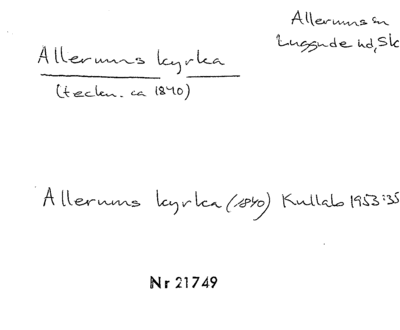 Allerums sn
Luggude hd, Sk
Allerums kyrka
(teckn. ca 1840)
Allerums kyrka (1840) Kullab 1953:35
Nr 21749